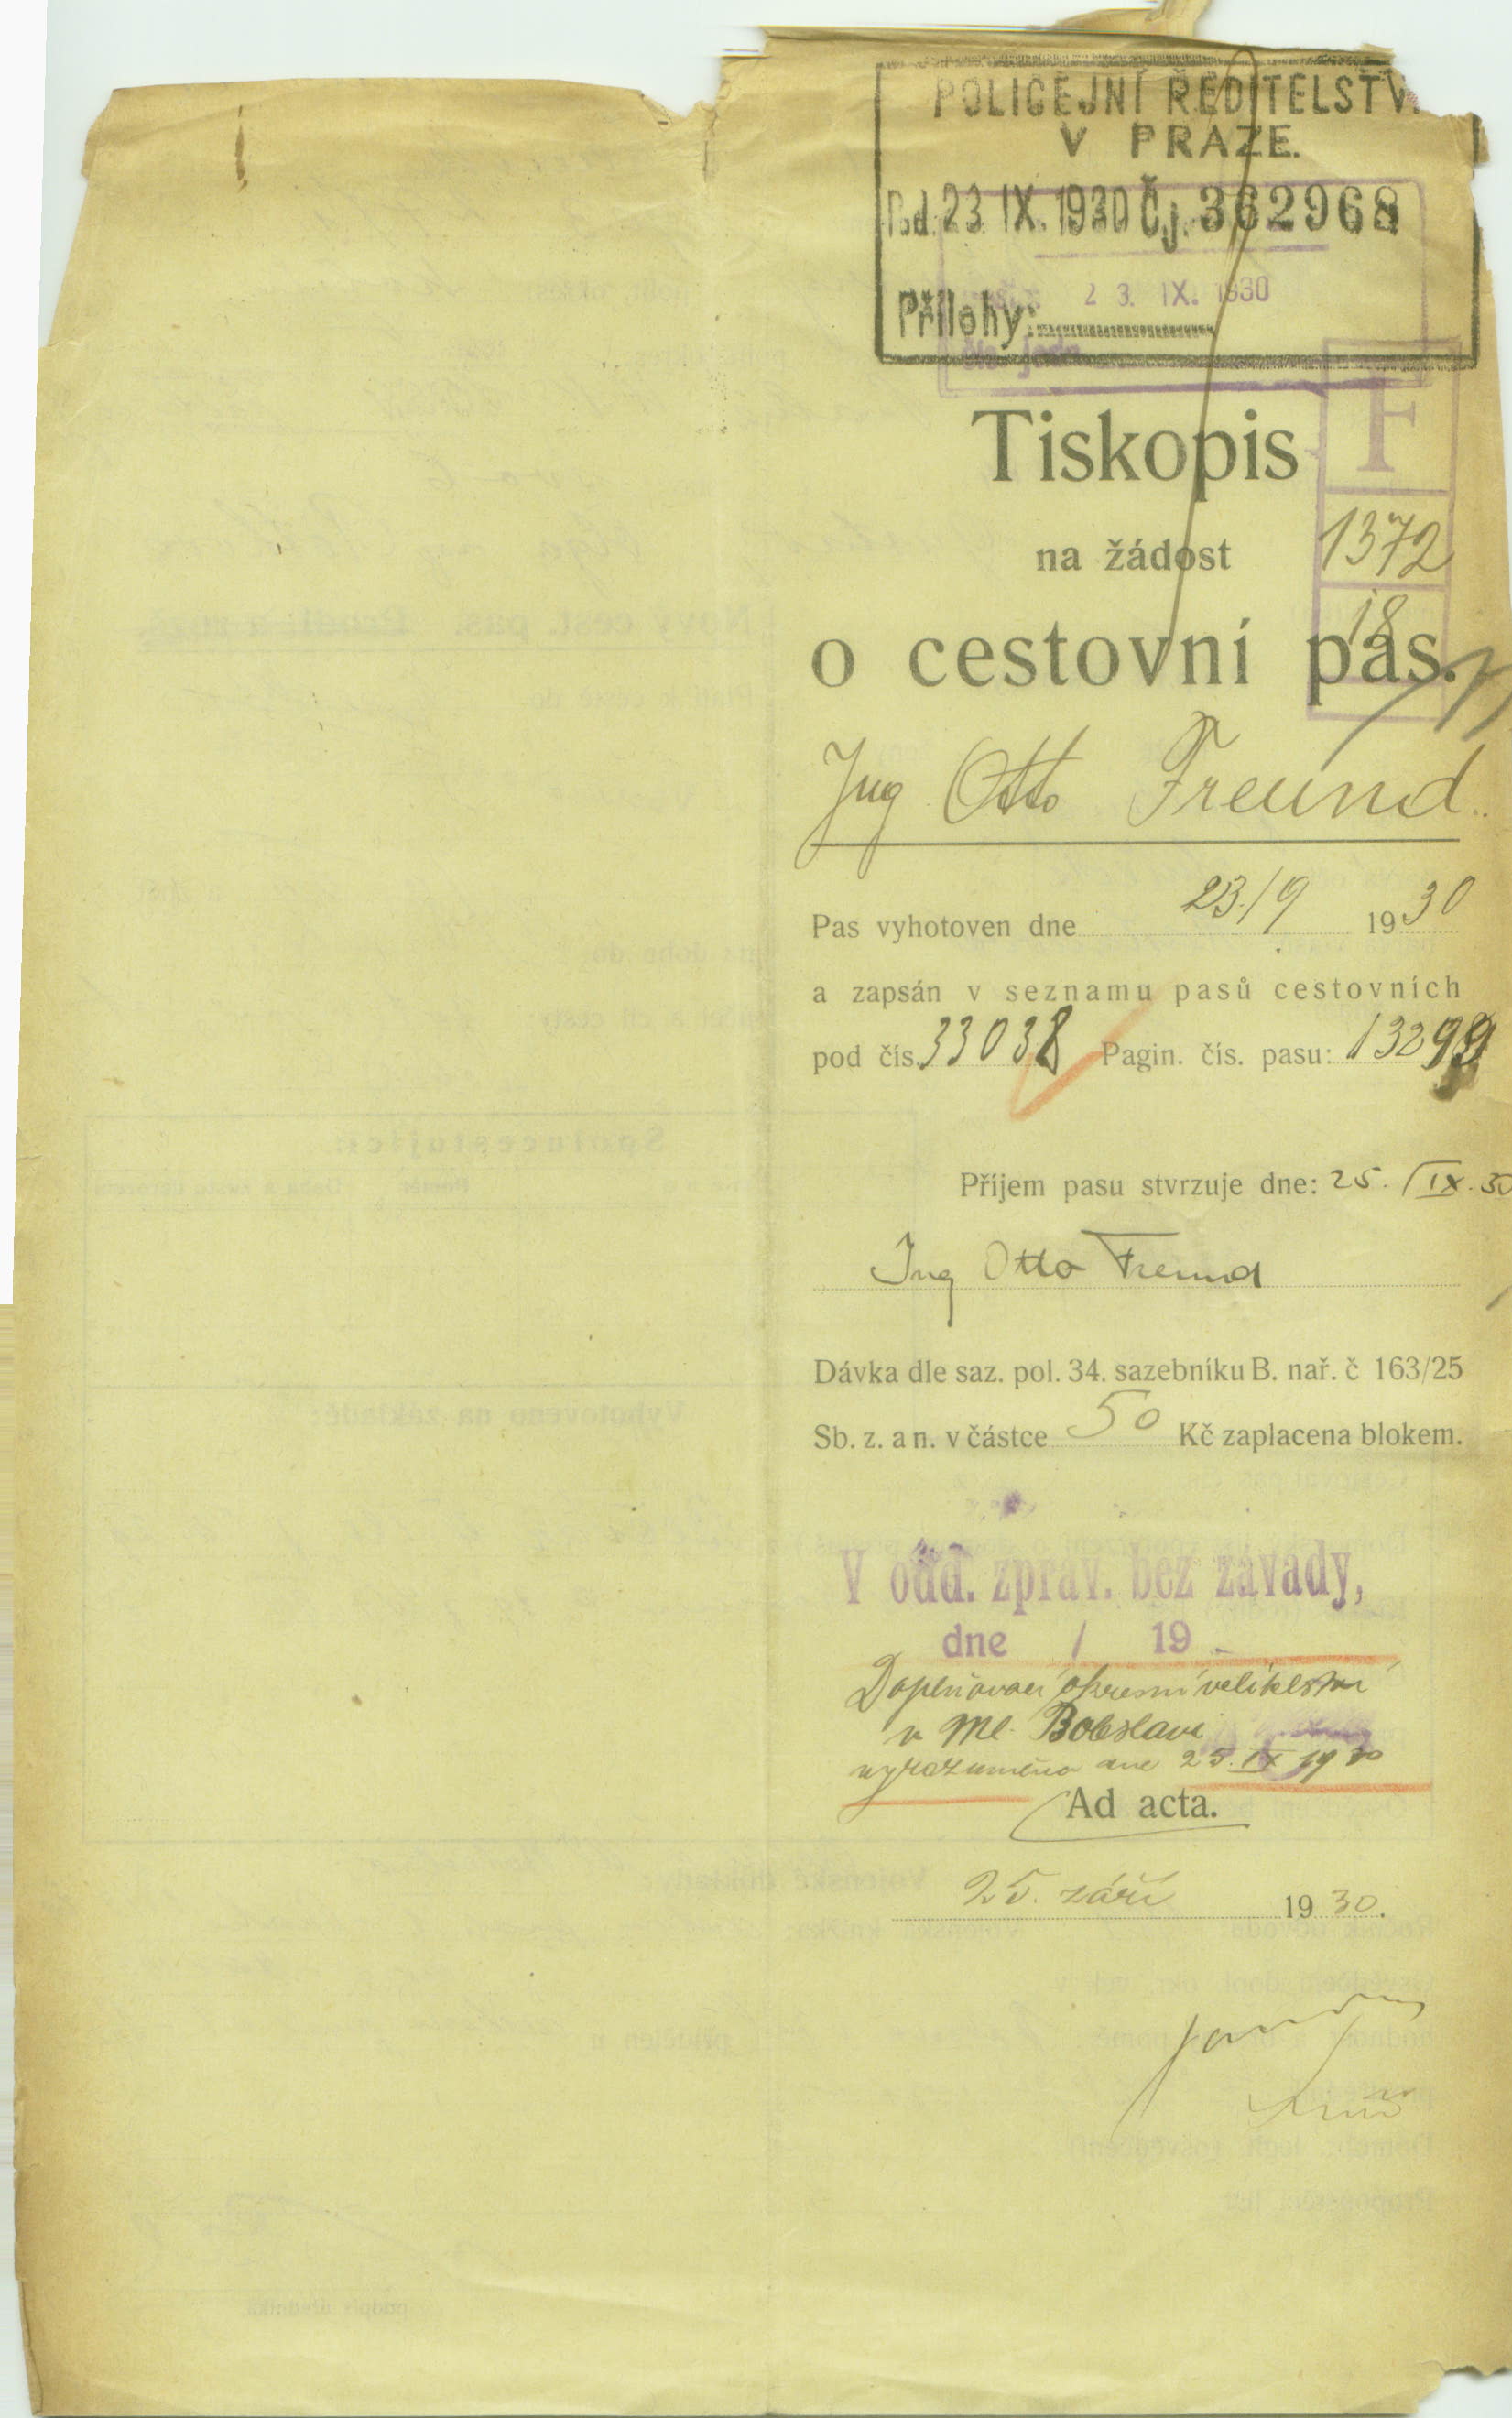 POLICEJNÍ ŘEDITELSTV
V PRAZE.
Dod. 23 IX. 1930 Čj. 362968
23. IX. 1930
Přílohy:
čís. jedn.
Tiskopis
F
na žádost
1372
18
o cestovní pas.
Ing Otto Freund.
Pas vyhotoven dne 23./9 1930
a zapsán v seznamu pasů cestovních
pod čís. 33038 Pagin. čís. pasu: 13299
Příjem pasu stvrzuje dne: 25. IX. 30
Ing Otto Freund
Dávka dle saz. pol. 34. sazebníku B. nař. č 163/25
Sb. z. a n. v částce 50 Kč zaplacena blokem.
V odd. zprav. bez závady,
dne / 19
Doplňovací okresní velitelství
v Ml. Boleslavi
vyrozuměno dne 25. IX 1930
Ad acta.
25. září 1930.